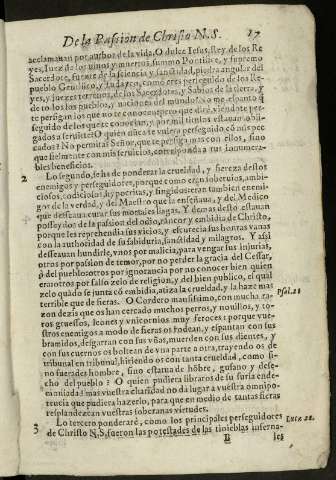 De la Passion de Christo N.S. 17
aclamauan por author de la vida. O dulce Iesus, Rey de los Re
yes, Iuez de los viuos y muertos, summo Pontifice, y supremo
Sacerdote, fuente de la sciencia y sanctidad, piedra angular del
pueblo Gentilico, y Iudayco, como eres perseguido de los Re-
yes, y Iuezes terrenos, de los Sacerdotes, y Sabios de la tierra, y
de todos los pueblos, y naciones del mundo? No me espanto q̃
te persigan los que no te conocen, pero que diré, viendote per-
seguido de los que te conocian, y por mil titulos estauan obli-
gados a seruirte? O quien nũca te vuiera perseguido cõ sus pec
cados? No permitas Señor, que te persiga mas con ellos, sino
que fielmente con mis seruicios, corresponda a tus innumera-
bles beneficios.
2 Lo segundo, se ha de ponderar la crueldad, y fiereza destos
enemigos y perseguidores, porque como eran soberuios, ambi-
ciosos, codiciosos, hypocritas, y fingidos, eran tambien enemi-
gos de la verdad, y del Maestro que la enseñaua, y del Medico
que desseaua curar sus mortales llagas. Y demas desto estauan
posseydos de la passion del odio, rancor y embidia de Christo,
porque les reprehendia sus vicios, y escurecia sus honras vanas
con la authoridad de su sabiduria, sanctidad y milagros. Y assi
desseauan hundirle, vnos por malicia, para vengar sus injurias,
otros por passion de temor, por no perder la gracia del Cessar,
ò del pueblo: otros por ignorancia por no conocer bien quien
era: otros por falso zelo de religion, y del bien publico, el qual
zelo quãdo se junta cõ embidia, atiza la crueldad, y la haze mas
terrible que de fieras. O Cordero mansissimo, con mucha ra-
zon dezis que os han cercado muchos perros, y nouillos, y to- Psal. 21
ros gruessos, leones y vnicornios muy feroces: porque vue-
stros enemigos a modo de fieras os rodean, y espantan con sus
bramidos, desgarran con sus vñas, muerden con sus dientes, y
con sus cuernos os boltean de vna parte a otra, trayendo os de
tribunal en tribunal, hiriendo os con tanta crueldad, como si
no fuerades hombre, sino estatua de hõbre, gusano y dese-
cho del pueblo? O quien pudiera libraros de su furia ende-
moniada? mas vuestra charidad no da lugar a vuestra omnipo-
tencia que pudiera hazerlo, para que en medio de tantas fieras
resplandezcan vuestras soberanas virtudes.
3 Lo tercero ponderaré, como los principales perseguidores Luc. 22.
de Christo N.S. fueron las potestades de las tinieblas inferna-
B les